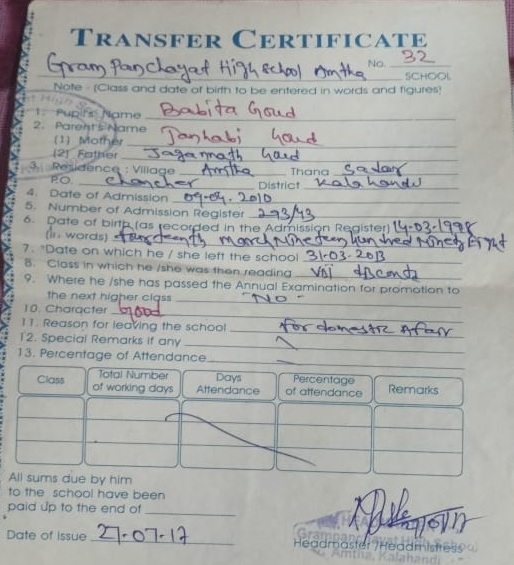 TRANSFER CERTIFICATE
No. 32
Gram Panchayat High School Amtha SCHOOL
Note - (Class and date of birth to be entered in words and figures)
1. Pupil's Name Babita Goud
2. Parent's Name
(1) Mother Goud
(2) Father Jagannath Goud
3. Residence: Village Amtha Thana Sadar
P.O. Chancher District Kalahandi
4. Date of Admission 09-04-2010
5. Number of Admission Register 293/43
6. Date of birth (as recorded in the Admission Register) 14-03-1998
(In words) fourteenth March Nineteen hundred Ninety Eight
7. Date on which he / she left the school 31-03-2013
8. Class in which he /she was then reading VIII
9. Where he /she has passed the Annual Examination for promotion to
the next higher class "NO"
10. Character Good
11. Reason for leaving the school for domestic Affair
12. Special Remarks if any
13. Percentage of Attendance
Class Total Number of working days Days Attendance Percentage of attendance Remarks
All sums due by him
to the school have been
paid up to the end of
Date of Issue 27-07-17
Headmaster /Headmistress
Grampanchayat High School
Amtha, Kalahandi